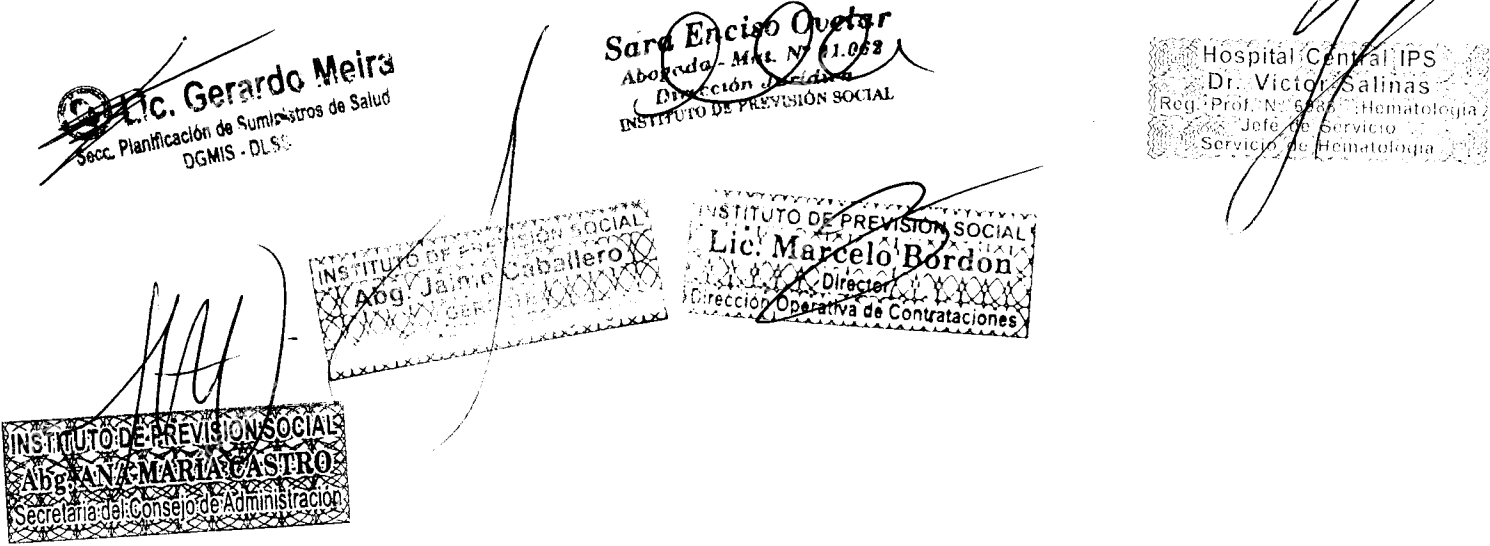 Lic. Gerardo Meira
Secc. Planificación de Suministros de Salud
DGMIS - DLSS
Sara Enciso Ovelar
Abogada - Mat. Nº 11.062
Dirección Jurídica
INSTITUTO DE PREVISIÓN SOCIAL
Hospital Central IPS
Dr. Victor Salinas
Reg. Prof. N° Hematología
Jefe de Servicio
Servicio de Hematología
INSTITUTO DE PREVISIÓN SOCIAL
Abg. Jaime Caballero
INSTITUTO DE PREVISIÓN SOCIAL
Lic. Marcelo Bordon
Director
Dirección Operativa de Contrataciones
INSTITUTO DE PREVISION SOCIAL
Abg. ANA MARÍA CASTRO
Secretaria del Consejo de Administración